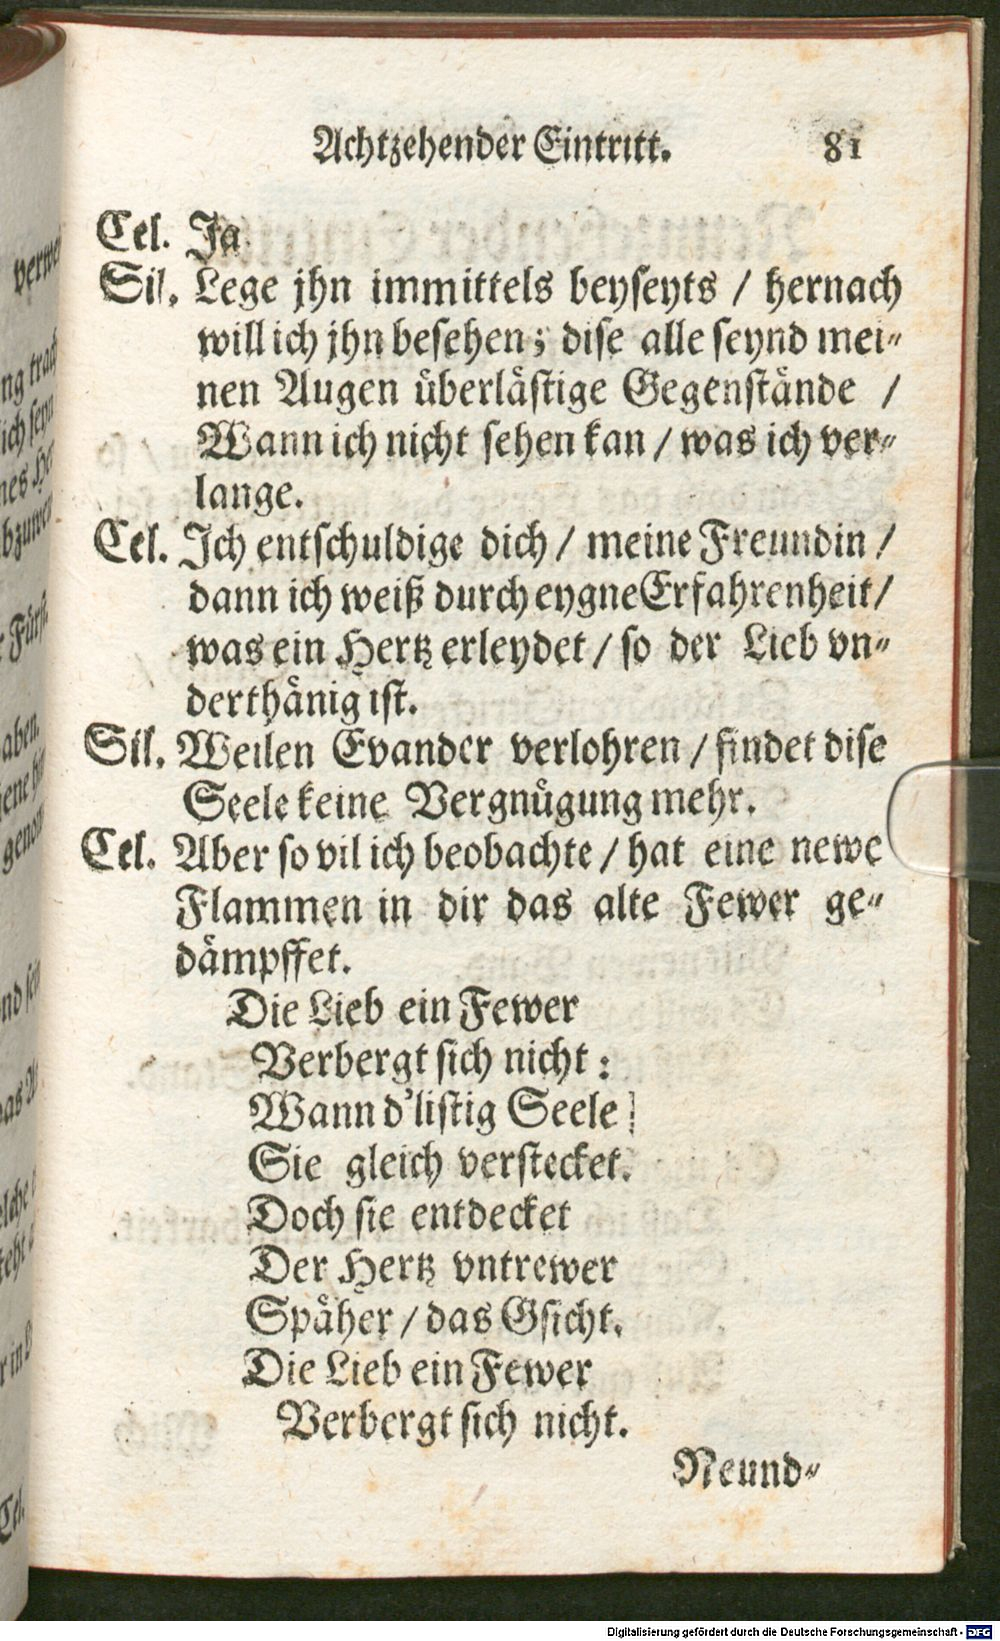 Achtzehender Eintritt. 81
Cel. Ja.
Sil. Lege jhn immittels beyseyts / hernach
will ich jhn besehen; dise alle seynd mei-
nen Augen überlästige Gegenstände /
Wann ich nicht sehen kan / was ich ver-
lange.
Cel. Ich entschuldige dich / meine Freundin /
dann ich weiß durch eygne Erfahrenheit /
was ein Hertz erleydet / so der Lieb vn-
derthänig ist.
Sil. Weilen Evander verlohren / findet dise
Seele keine Vergnügung mehr.
Cel. Aber so vil ich beobachte / hat eine newe
Flammen in dir das alte Fewer ge-
dämpffet.
Die Lieb ein Fewer
Verbergt sich nicht:
Wann d'listig Seele
Sie gleich verstecket.
Doch sie entdecket
Der Hertz vntrewer
Späher / das Gsicht.
Die Lieb ein Fewer
Verbergt sich nicht.
Neund-
Digitalisierung gefördert durch die Deutsche Forschungsgemeinschaft - DFG